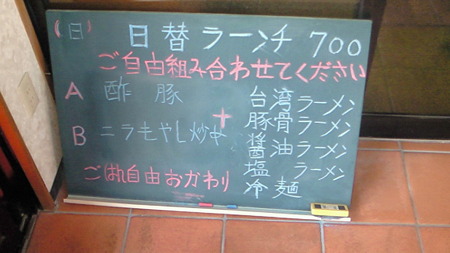 (日) 日替ラーンチ 700
ご自由組み合わせてください
A 酢豚
B ニラもやし炒め
+
台湾ラーメン
豚骨ラーメン
醤油ラーメン
塩ラーメン
冷麺
ごはん自由おかわり